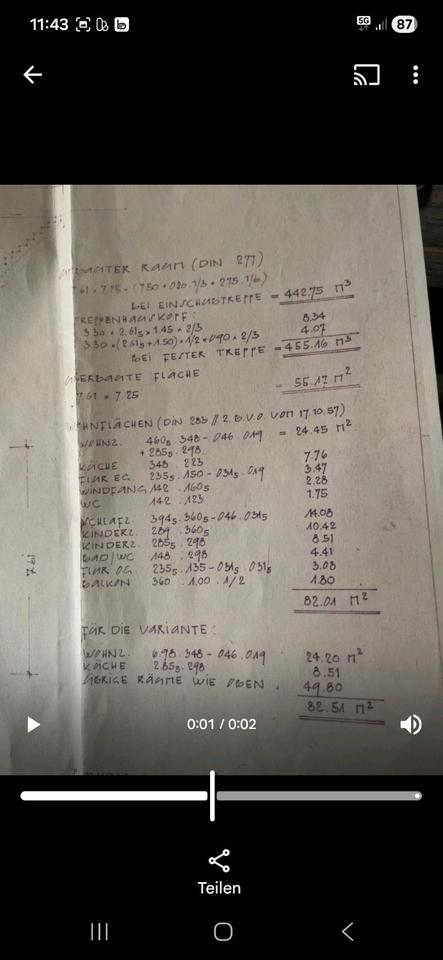 11:43
5G
87
UMBAUTER RAUM (DIN 277)
7.61 × 7.25 × (7.50 + 0.20 . 1/3 + 2.75 . 1/6)
BEI EINSCHUBTREPPE = 442.75 M³
TREPPENHAUSKOPF:
3.30 × 2.61⁵ × 1.45 × 2/3 8.34
3.30 × (2.61⁵ + 1.50) × 1/2 × 0.90 × 2/3 4.07
BEI FESTER TREPPE = 455.16 M³
ÜBERBAUTE FLÄCHE
7.61 × 7.25 = 55.17 M²
WOHNFLÄCHEN (DIN 283 // 2. B.V.O. VOM 17.10.57)
WOHNZ. 460⁵ . 348 - 046 . 019 = 24.45 M²
+ 285⁵ . 298
KÜCHE 348 . 223 7.76
FLUR EG. 235⁵ . 150 - 031⁵ . 019 3.47
WINDFANG 142 . 160⁵ 2.28
WC 142 . 123 1.75
SCHLAFZ. 394⁵ . 360⁵ - 046 . 031⁵ 14.08
KINDERZ. 289 . 360⁵ 10.42
KINDERZ. 285⁵ . 298 8.51
BAD/WC 148 . 298 4.41
FLUR OG. 235⁵ . 135 - 031⁵ . 031⁵ 3.08
BALKON 360 . 1.00 . 1/2 1.80
82.01 M²
FÜR DIE VARIANTE:
WOHNZ. 6.98 . 348 - 046 . 019 24.20 M²
KÜCHE 2.85⁵ . 298 8.51
ÜBRIGE RÄUME WIE OBEN . 49.80
82.51 M²
0:01 / 0:02
Teilen